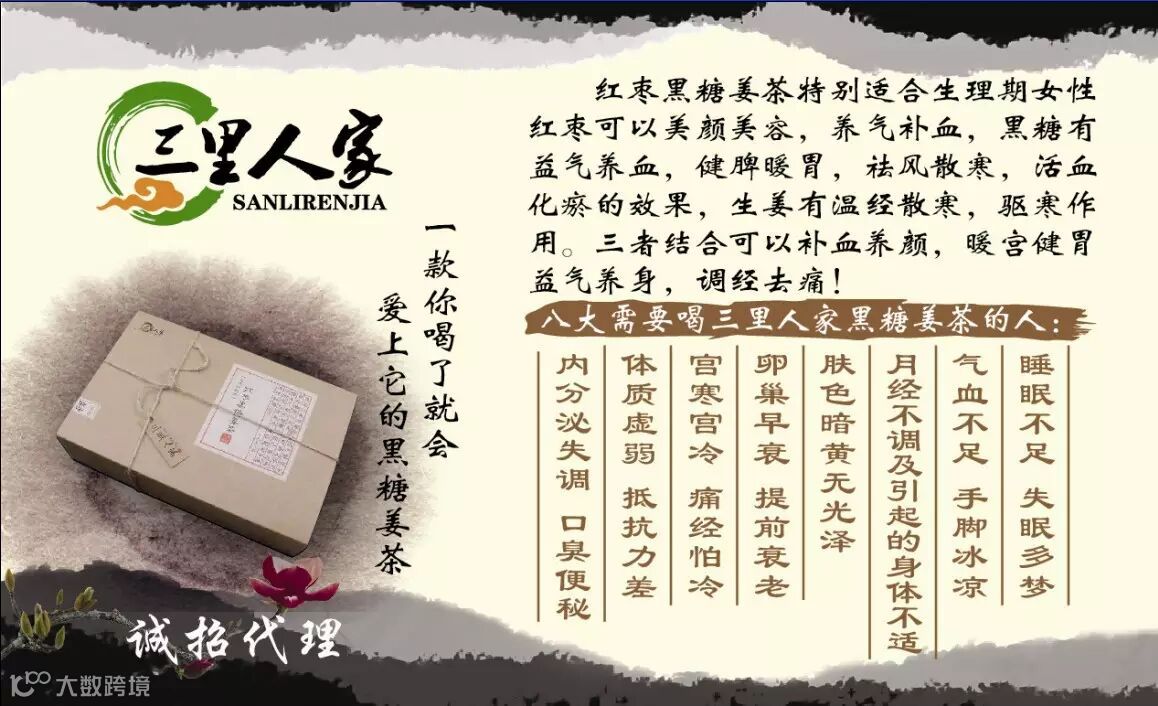 三里人家
SANLIRENJIA
一款你喝了就会
爱上它的黑糖姜茶
红枣黑糖姜茶特别适合生理期女性
红枣可以美颜美容，养气补血，黑糖有
益气养血，健脾暖胃，祛风散寒，活血
化瘀的效果，生姜有温经散寒，驱寒作
用。三者结合可以补血养颜，暖宫健胃
益气养身，调经去痛！
八大需要喝三里人家黑糖姜茶的人：
睡眠不足 失眠多梦
气血不足 手脚冰凉
月经不调及引起的身体不适
肤色暗黄无光泽
卵巢早衰 提前衰老
宫寒宫冷 痛经怕冷
体质虚弱 抵抗力差
内分泌失调 口臭便秘
诚招代理
大数跨境